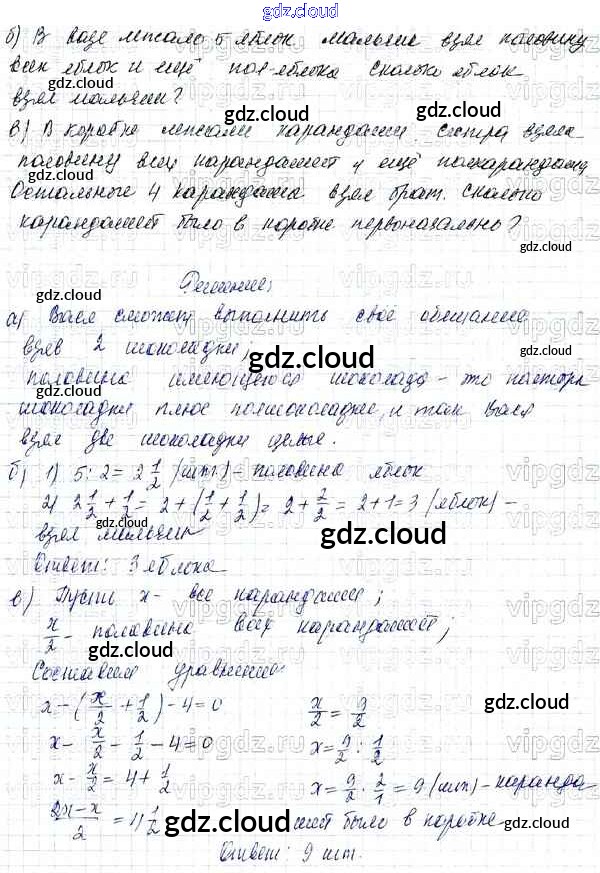 gdz.cloud
б) В вазе лежало 5 яблок мальчик взял половину
всех яблок и ещё пол-яблока сколько яблок
взял мальчик? gdz.cloud gdz.cloud
в) В коробке лежали карандаши. Сестра взяла
половину всех карандашей и ещё полкарандаша
Остальные 4 карандаша взял брат. Сколько
карандашей было в коробке первоначально?
gdz.cloud
Решение:
gdz.cloud
а) Вася сможет выполнить своё обещание
взяв 2 шоколадки; gdz.cloud
gdz.cloud
половина имеющегося шоколада – это полторы
шоколадки плюс полшоколадки, и так Вася
взял две шоколадки целые. gdz.cloud
б) 1) 5 : 2 = 2 1/2 (шт.) – половина яблок
2) 2 1/2 + 1/2 = 2 + (1/2 + 1/2) = 2 + 2/2 = 2 + 1 = 3 (яблок) –
взял мальчик gdz.cloud gdz.cloud
Ответ: 3 яблока
в) Пусть x – все карандаши;
x/2 – половина всех карандашей;
gdz.cloud
Составим уравнение:
gdz.cloud
x – (x/2 + 1/2) – 4 = 0 x/2 = 9/2
x – x/2 – 1/2 – 4 = 0 x = 9/2 : 1/2
x – x/2 = 4 + 1/2 x = 9/2 · 2/1 = 9 (шт) – каранда
gdz.cloud
2x – x/2 = 4 1/2 шей было в коробке
gdz.cloud gdz.cloud
Ответ: 9 шт.
vipgdz.ru